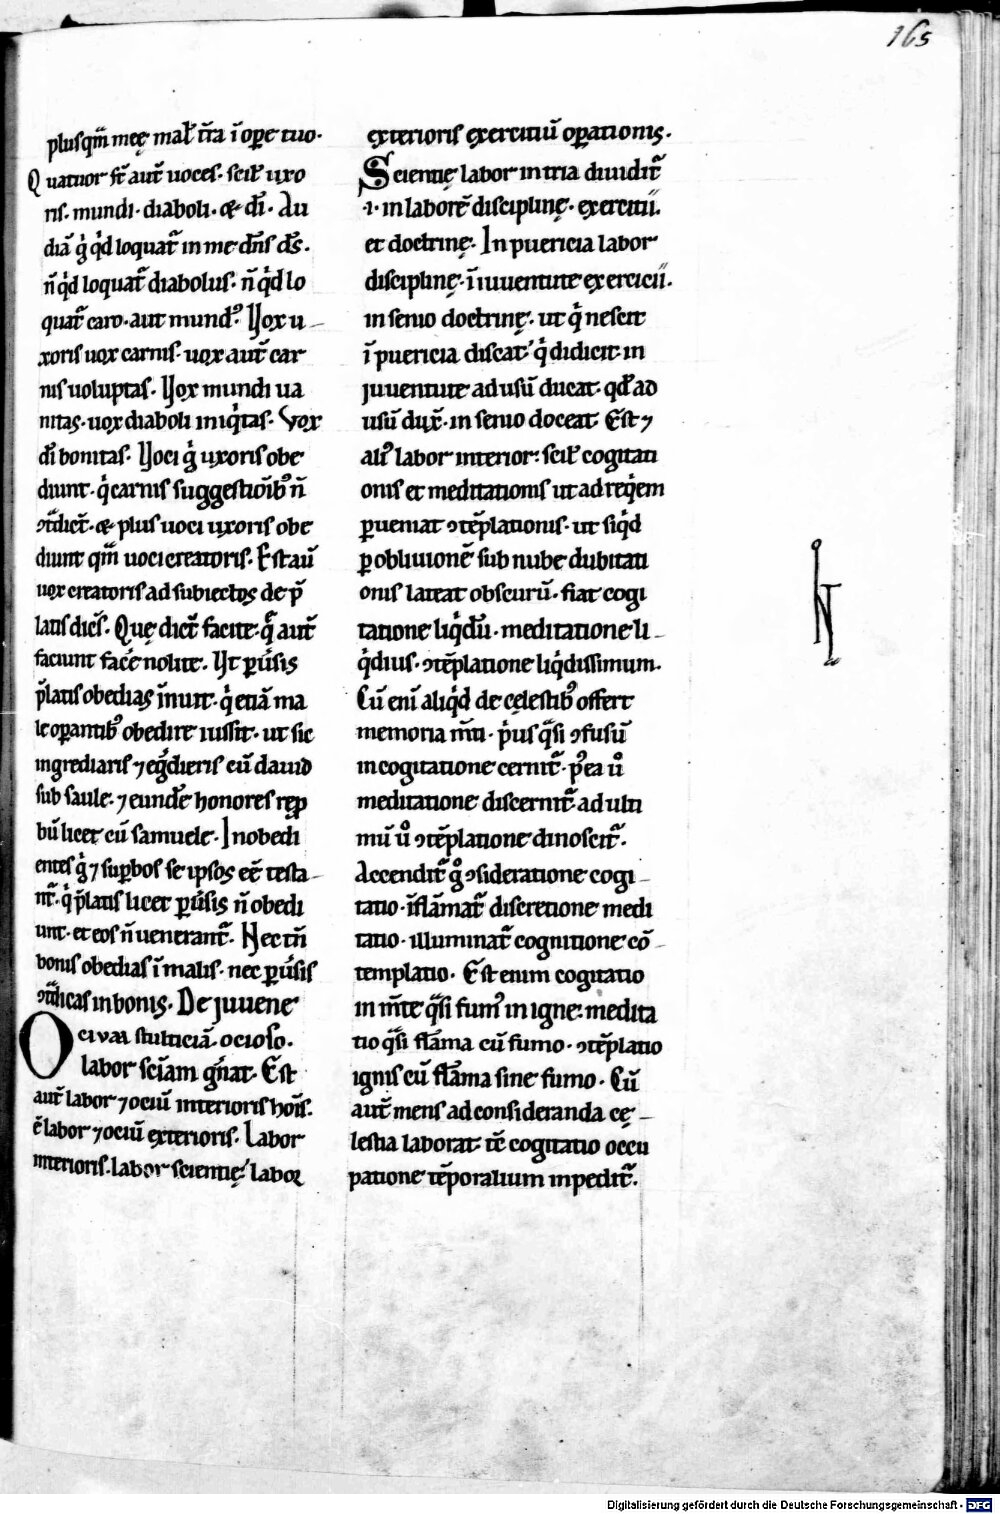 165
plusqm̄ meę mal᷎ tr̄a ī oꝑe tuo.
Quatuor st̄ aut̄ uoces. scil᷎ uxo
ris. mundi. diaboli. & dī. Au
diā gͥ qͥd loquat᷑ in me dn̄s ds̄.
n̄ qͥd loquat᷑ diabolus. n̄ qͥd lo
quat᷑ caro. aut mundꝰ. Vox u-
xoris uox carnis. uox aut̄ car
nis uoluptas. Vox mundi ua
nitas. uox diaboli iniqͥtas. Vox
dī bonitas. Voci gͥ uxoris obe
diunt. qͥ carnis suggestioībꝰ n̄
ↄͣdict̄. & plus uoci uxoris obe
diunt qm̄ uoci creatoris. Est aū
uox creatoris ad subiectos de p̄
latis dice᷎s. Quę dict̄ facite. qͣ aut̄
faciunt face᷎ nolite. Vt ꝑuͥsis
p̄latis obedias īnuit. qͥ etiā ma
le oꝑantibꝰ obedire iussit. ut sic
ingrediaris ⁊ egͣdieris cū dauid
sub saule. ⁊ eundē honores rep̱
bū licet cū samuele. Inobedi
entes gͥ ⁊ suꝑbos se ipsos eē testa-
nt᷑. qͥ p̄latis licet ꝑuͥsis n̄ obedi
unt. et eos n̄ uenerant᷑. Nec tn̄
bonis obedias ī malis. nec ꝑuͥsis
ↄͣdicas in bonis. De juuene
Oci vai stulticiā. ocioso.
labor scīam gn̄at. Est
aut̄ labor ⁊ ociū interioris hoīs.
ē labor ⁊ ociū exterioris. Labor
interioris. labor scientię. labor
exterioris exercitiū oꝑationis.
Scientię labor in tria diuidit᷑
.i. in laborē disciplinę. exercitii.
et doctrinę. In puericia labor
disciplinę. ī iuuentute exercicii.
in senio doctrinę. ut qͥ nescit
ī puericia discat. qͥ didicit in
juuentute ad usū ducat. qd̄ ad
usū dux᷑. in senio doceat. Est ⁊
aliꝰ labor interior: scil᷎ cogitati
onis et meditationis ut ad reqͥem
ꝑueniat ↄtēplationis. ut siqͥd
ꝑ obliuionē sub nube dubitati
onis lateat obscurū. fiat cogi
tatione liqͥdū. meditatione li-
qͥdius. ↄtēplatione liqͥdissimum.
Cū eni᷎ aliqͥd de cęlestibꝰ offert
memoria m̄ti. pͥus qͣsi ↄfusū
in cogitatione cernit᷑. pꝰea uͦ
meditatione discernit᷑. ad ulti
mū uͦ ↄtēplatione dinoscit᷑.
Accendit᷑ gͦ ↄsideratione cogi-
tatio. īflāmat᷑ discretione medi
tatio. illuminat᷑ cognitione cō-
templatio. Est enim cogitatio
in m̄te qͣsi fumꝰ in igne: medita
tio qͣsi flāma cū fumo. ↄtēplatio
ignis cū flāma sine fumo. Cū
aut̄ mens ad consideranda cę-
lestia laborat. tc̄ cogitatio occu
patione tēporalium inpedit᷑.
Digitalisierung gefördert durch die Deutsche Forschungsgemeinschaft - DFG